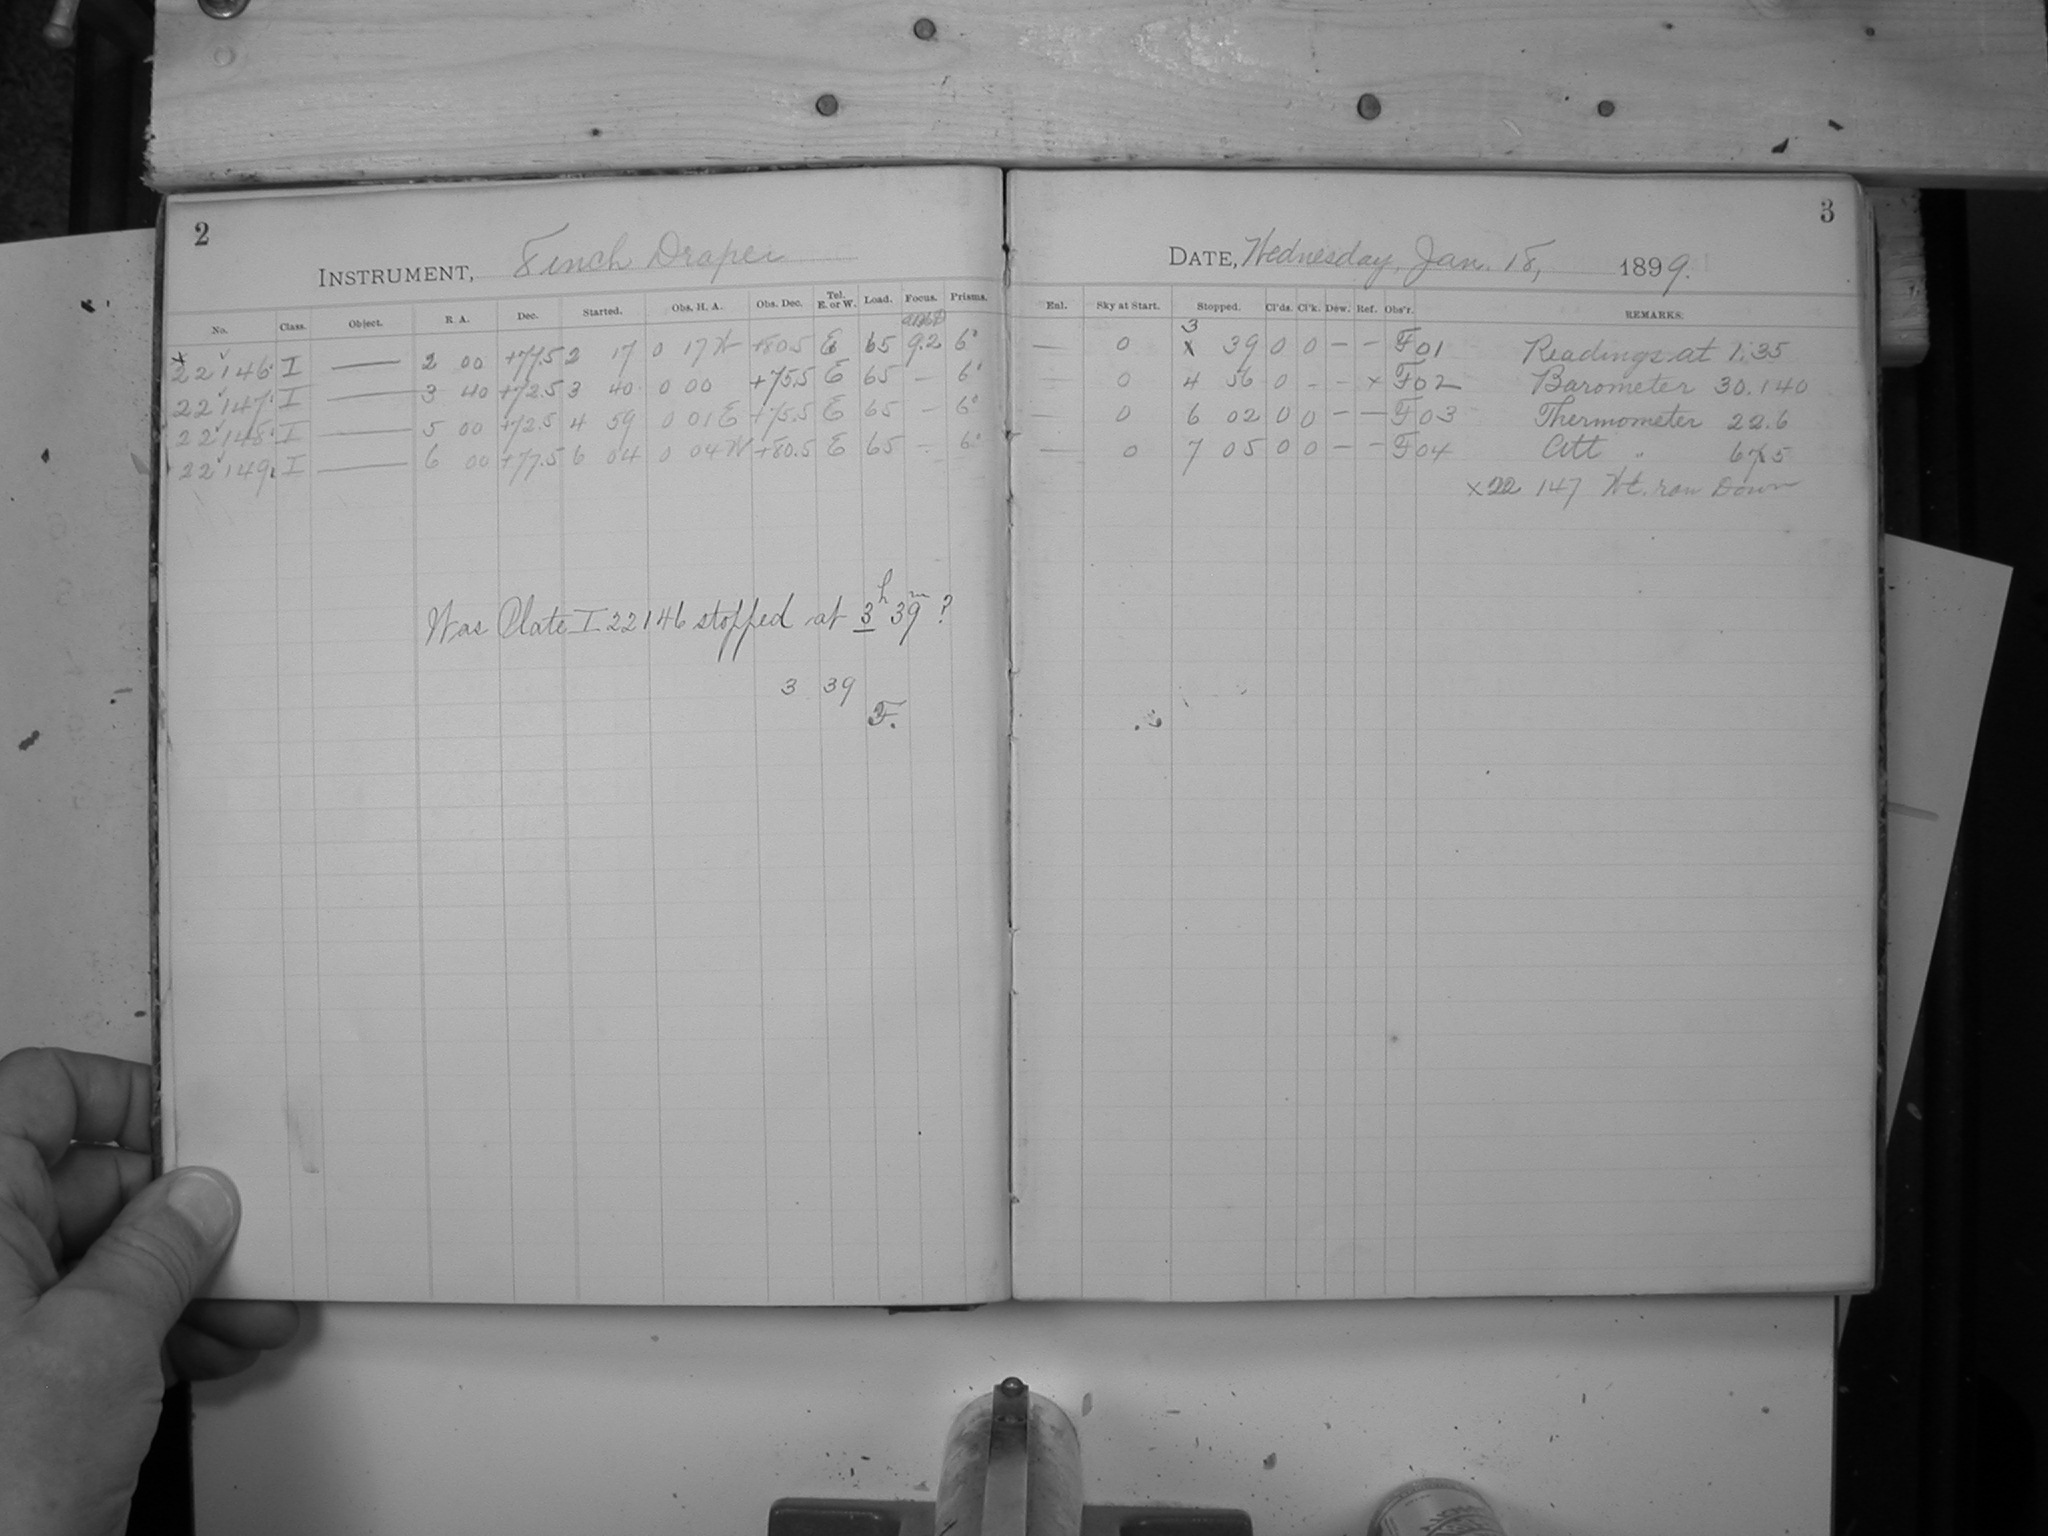 2
INSTRUMENT, 8 inch Draper
No. Class. Object. R. A. Dec. Started. Obs. H. A. Obs. Dec. Tel. E. or W. Load. Focus. Prisms.
22146 I — 2 00 +77.5 2 17 0 17 W +80.5 E 65 9.2 6°
22147 I — 3 40 +72.5 3 40 0 00 +75.5 E 65 — 6°
22148 I — 5 00 +72.5 4 59 0 01 E +75.5 E 65 — 6°
22149 I — 6 00 +77.5 6 04 0 04 W +80.5 E 65 — 6°
Was Plate I 22146 stopped at 3h 39m ?
3 39
F.
3
DATE, Wednesday, Jan. 18, 1899.
Enl. Sky at Start. Stopped. Cl'ds. Cl'k. Dew. Ref. Obs'r. REMARKS.
— 0 3 39 0 0 — — F 01 Readings at 1.35
— 0 4 56 0 - - x F 02 Barometer 30.140
— 0 6 02 0 0 — — F 03 Thermometer 22.6
— 0 7 05 0 0 — — F 04 Att "
x22 147 Wt. ran Down